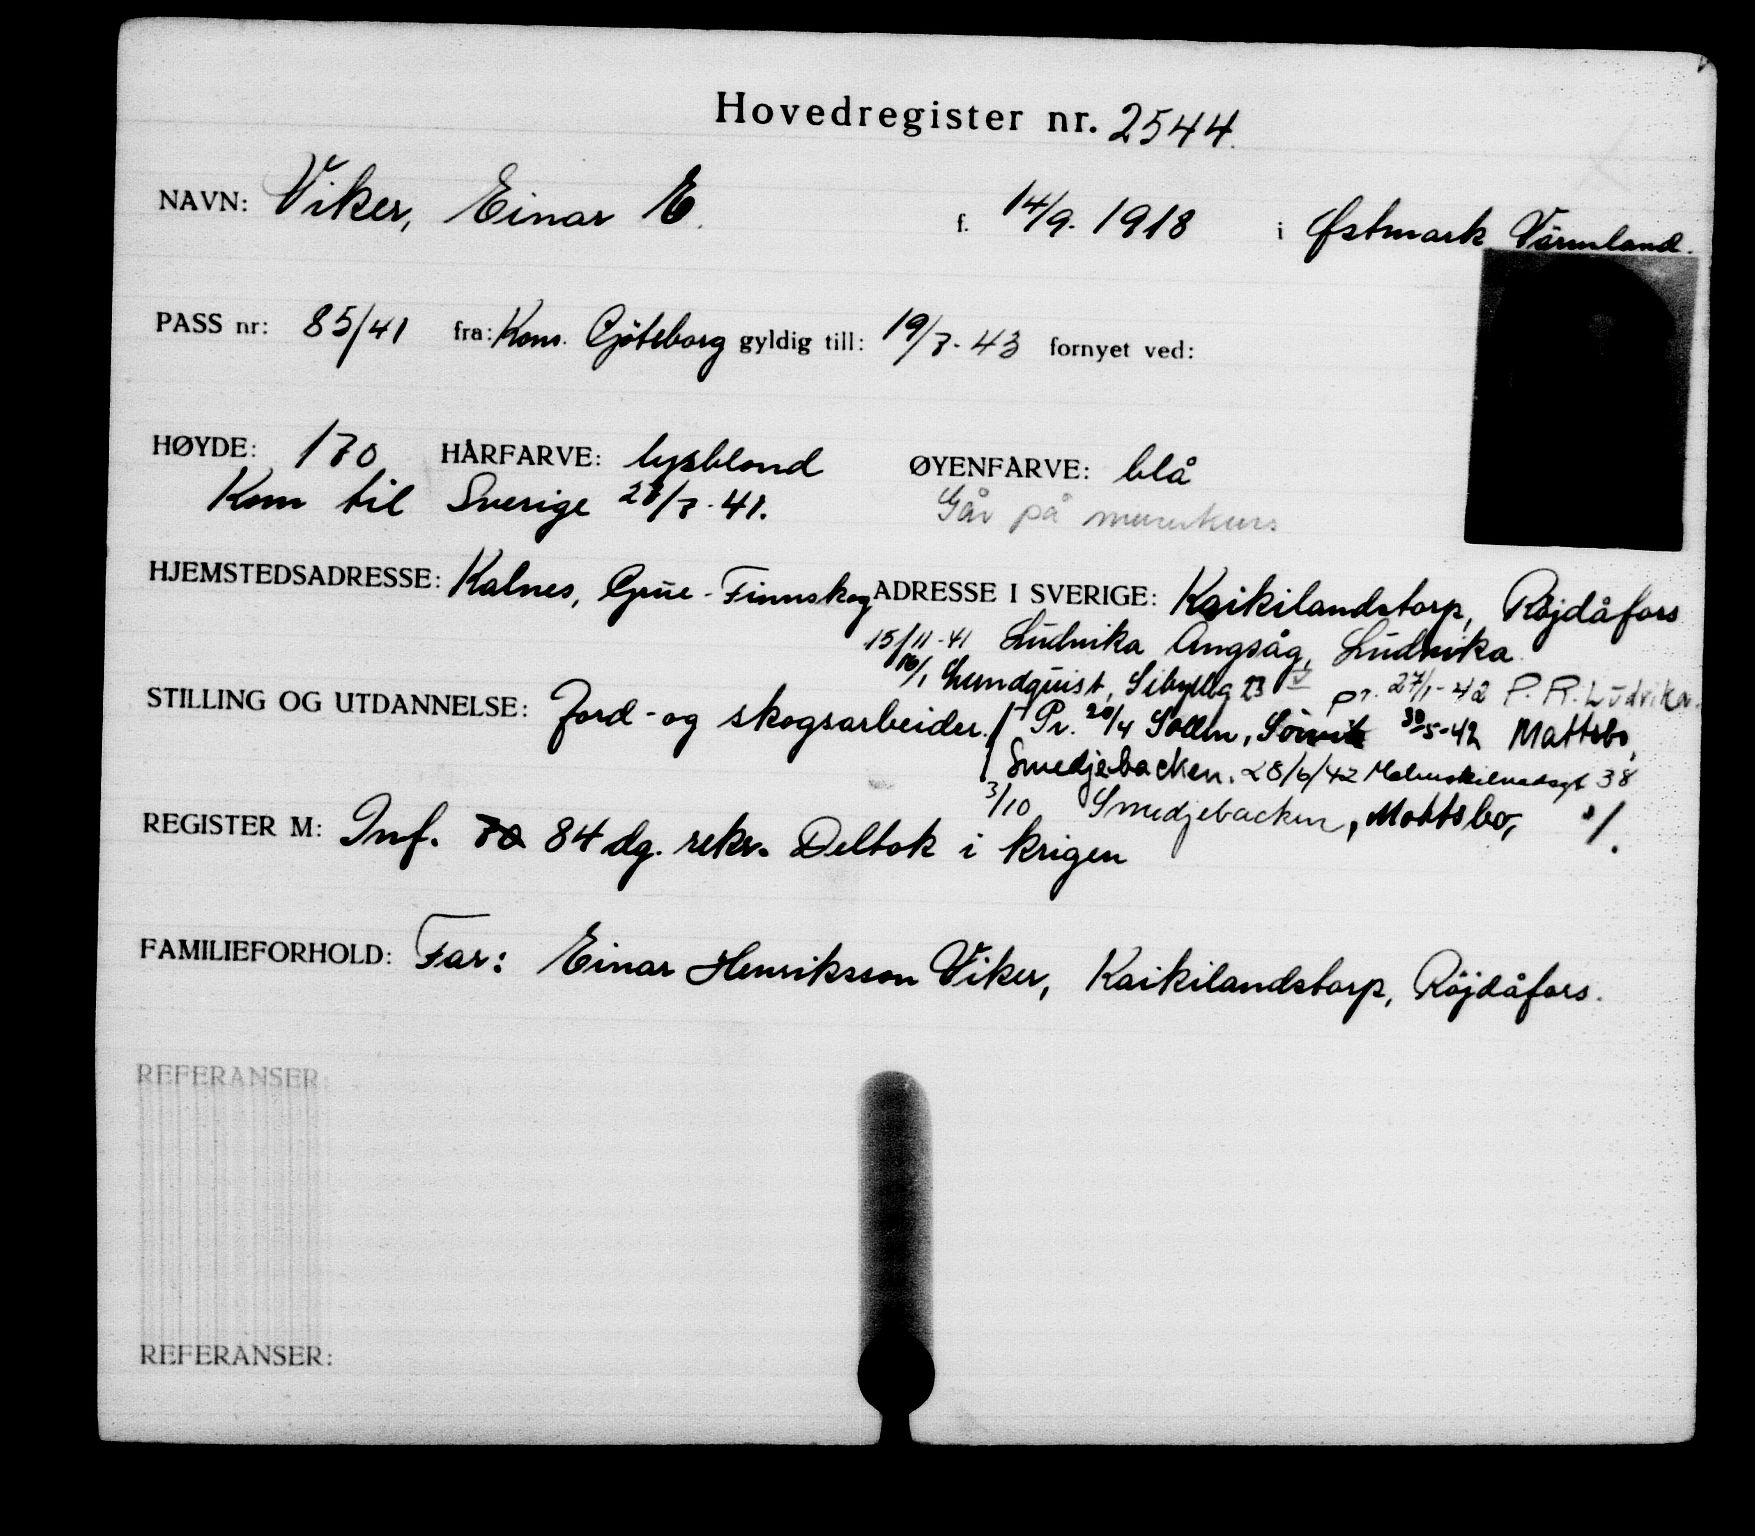 Hovedregister nr. 2544.
NAVN: Viker, Einar E. f. 14/9. 1918 i Østmark Värmland.
PASS nr: 85/41 fra: Kons. Gøteborg gyldig till: 19/7-43 fornyet ved:
HØYDE: 170 HÅRFARVE: lysblond ØYENFARVE: blå
Kom til Sverige 27/7-41. Går på murerkurs
HJEMSTEDSADRESSE: Kalnes, Grue-Finnskog ADRESSE I SVERIGE: Kaikilandstorp, Röjdåfors
15/11-41 Ludvika Angsåg, Ludvika.
16/1 Lundquist, Sibyllg 23 pr. 27/1-42 P.R. Ludvika.
STILLING OG UTDANNELSE: Jord- og skogsarbeider. Pr. 20/4 30/5-42 Mattsbo,
Smedjebacken. 28/6/42 Malmskilnadsgt 38
3/10 Smedjebacken, Mattsbo,
REGISTER M: Inf. 84 dg. rekr. Deltok i krigen
FAMILIEFORHOLD: Far: Einar Henriksson Viker, Kaikilandstorp, Röjdåfors.
REFERANSER:
REFERANSER: